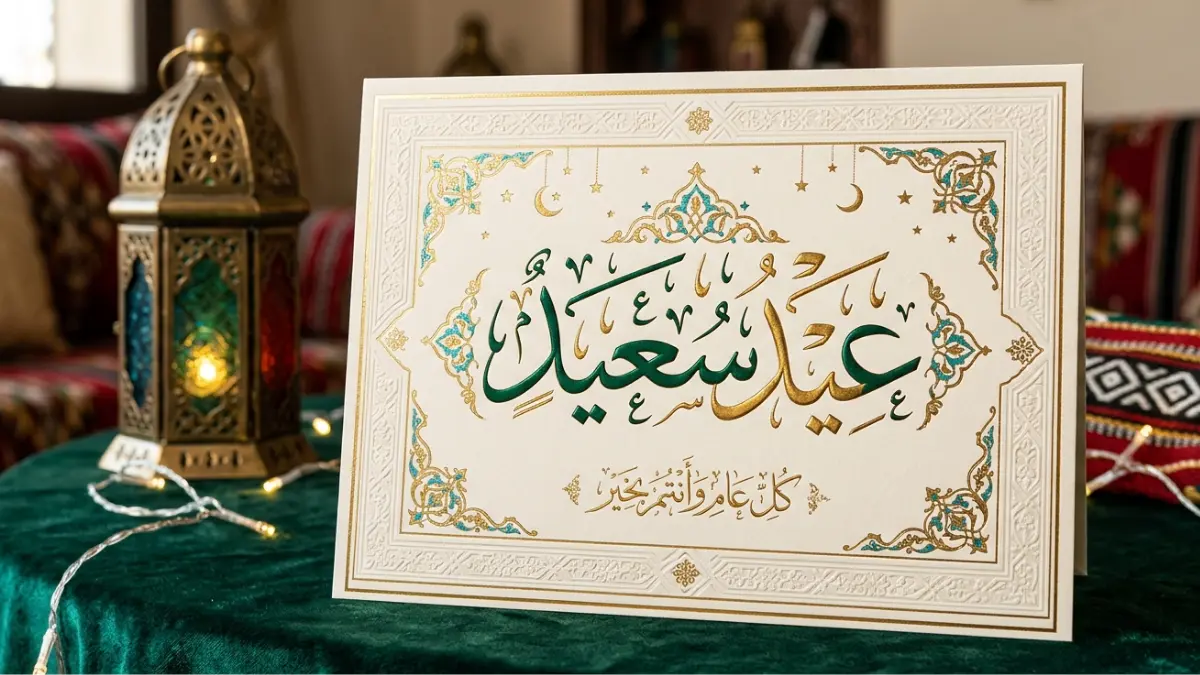 عِيْدٌ سُعَيْدٌ
كُلُّ عَامٍ وَأَنْتُمْ بِخَيْرٍ